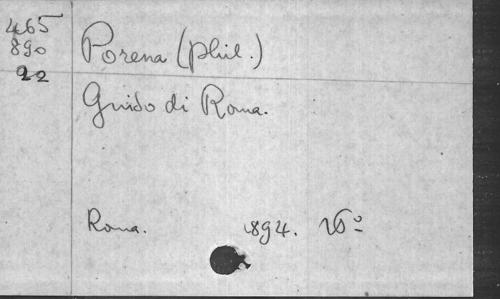 465
890
22
Porena (phil.)
Guido di Roma.
Roma. 1894. 16º